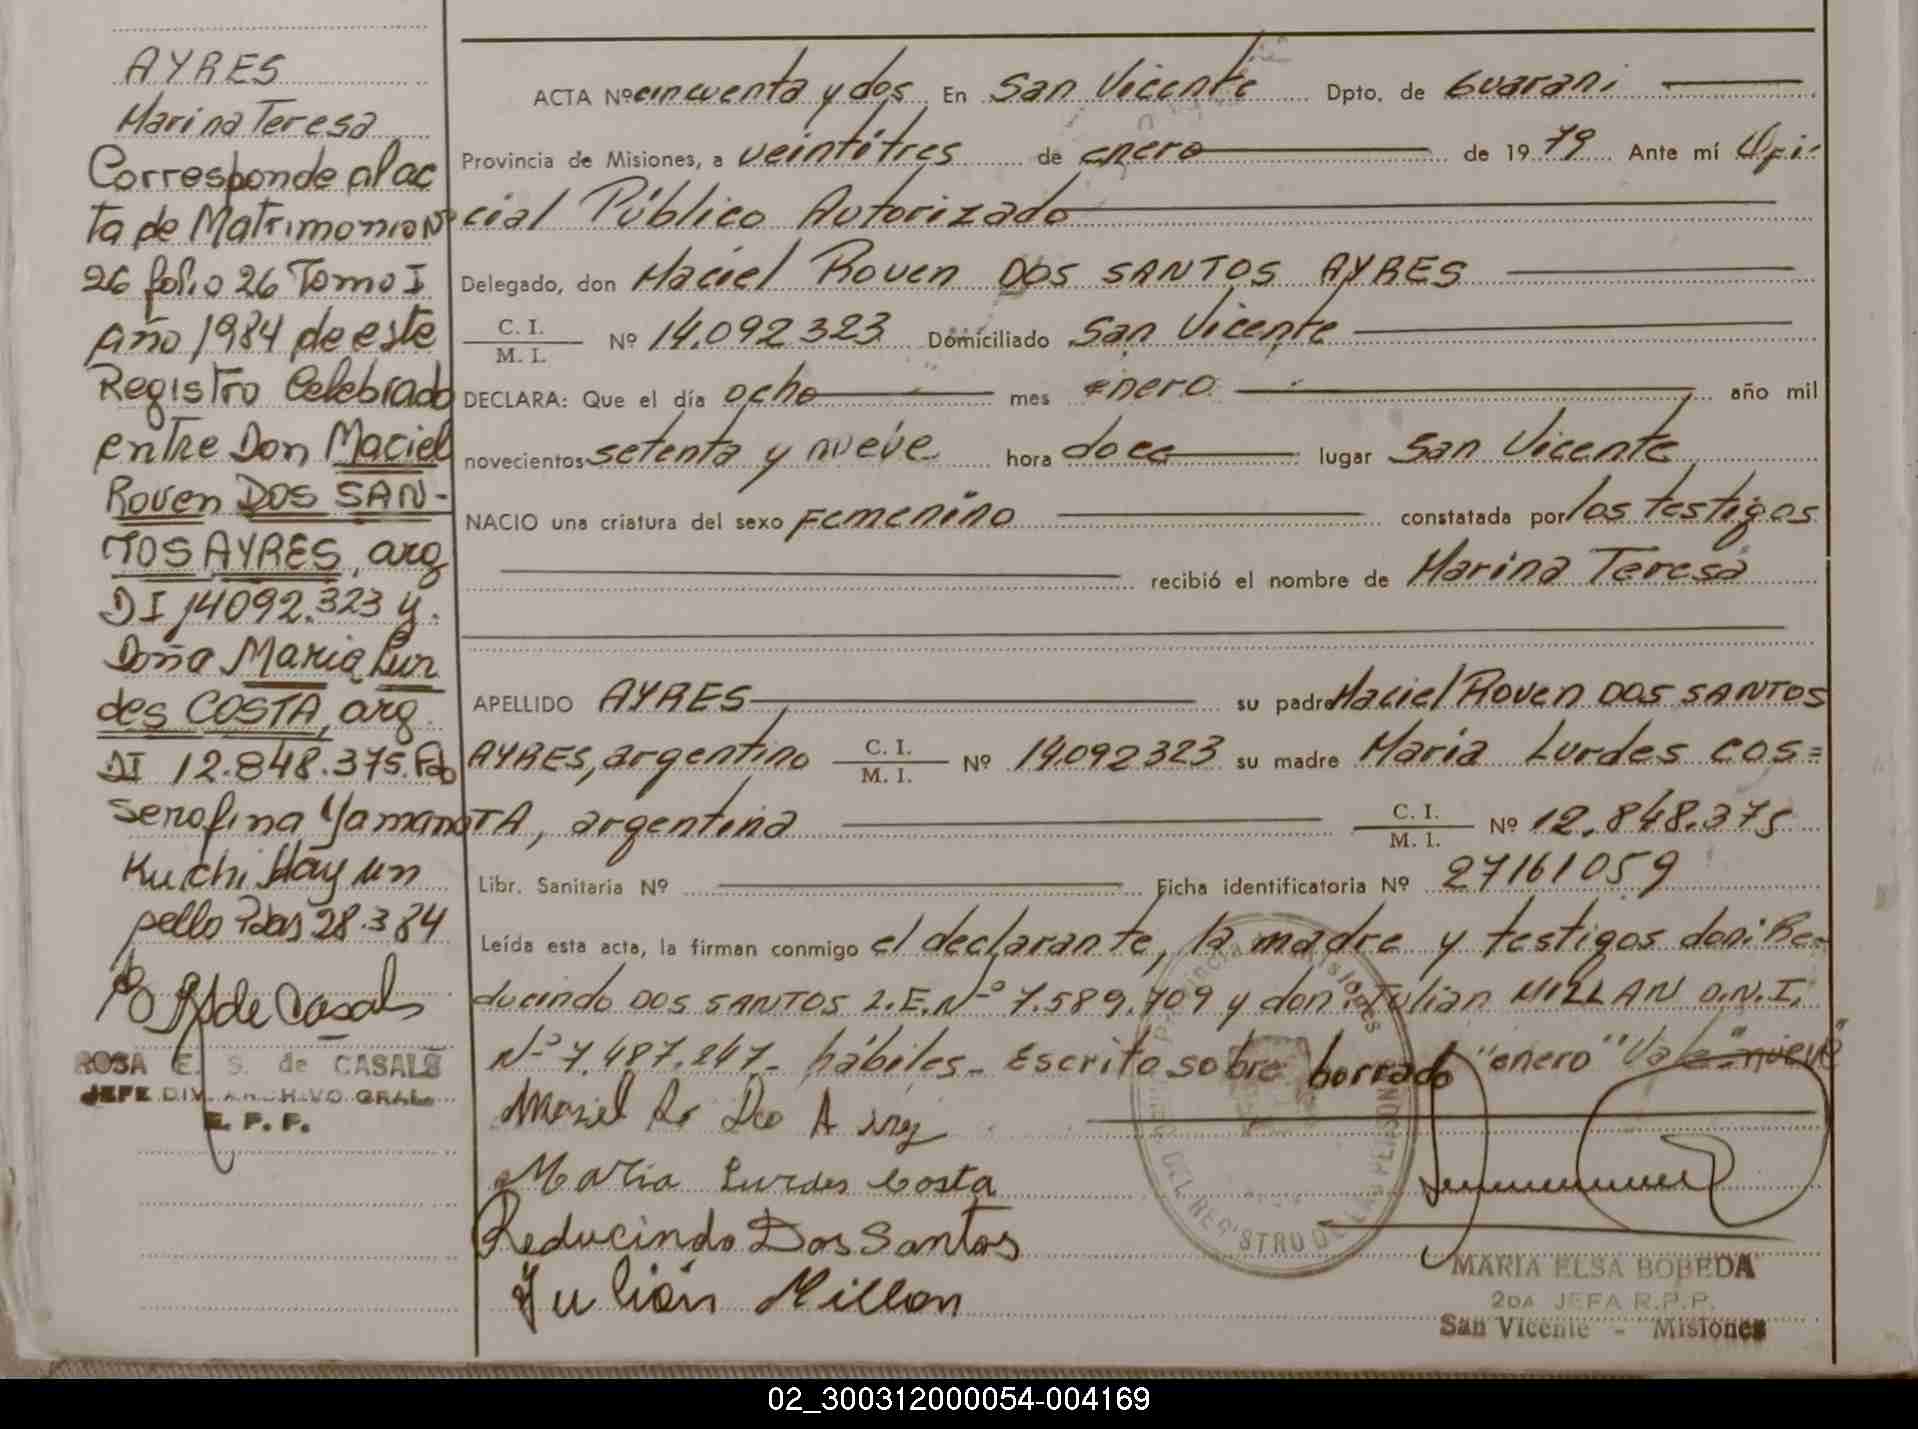 AYRES
Marina Teresa
Corresponde al ac
ta de Matrimonio Nº
26 folio 26 Tomo I
año 1984 de este
Registro Celebrado
entre Don Maciel
Roven DOS SAN-
TOS AYRES, arg
DI 14092.323 y.
Doña Maria Lur
des COSTA, arg.
DI 12.848.375. Fdo
Serafina Yamano
Kuchi Hay un
sello Pdas 28.3.84
ROSA E. S. de CASALS
JEFE DIV. ARCHIVO GRAL.
R. P. P.
ACTA Nº cincuenta y dos En San Vicente Dpto. de Guarani
Provincia de Misiones, a veintitres de enero de 1979 Ante mí Ofi-
cial Público Autorizado
Delegado, don Maciel Roven DOS SANTOS AYRES
C. I. / M. I. Nº 14.092.323 Domiciliado San Vicente
DECLARA: Que el día ocho mes enero año mil
novecientos setenta y nueve hora doce lugar San Vicente
NACIO una criatura del sexo Femenino constatada por los testigos
recibió el nombre de Marina Teresa
APELLIDO AYRES su padre Maciel Roven DOS SANTOS
AYRES, argentino C. I. / M. I. Nº 14.092323 su madre Maria Lurdes COS=
TA, argentina C. I. / M. I. Nº 12.848.375
Libr. Sanitaria Nº Ficha identificatoria Nº 27161059
Leída esta acta, la firman conmigo el declarante, la madre y testigos don: Re-
ducindo DOS SANTOS L.E.Nº 7.589.709 y don: Julian MILLAN D.N.I.
Nº 7.487.247- hábiles- Escrito sobre borrado "enero" Vale "nueve"
Maria Lurdes Costa
Reducindo Dos Santos
Julián Millan
DEL REGISTRO DE LAS PERSONAS
MARIA ELSA BOBEDA
2DA JEFA R.P.P.
San Vicente - Misiones
02_300312000054-004169